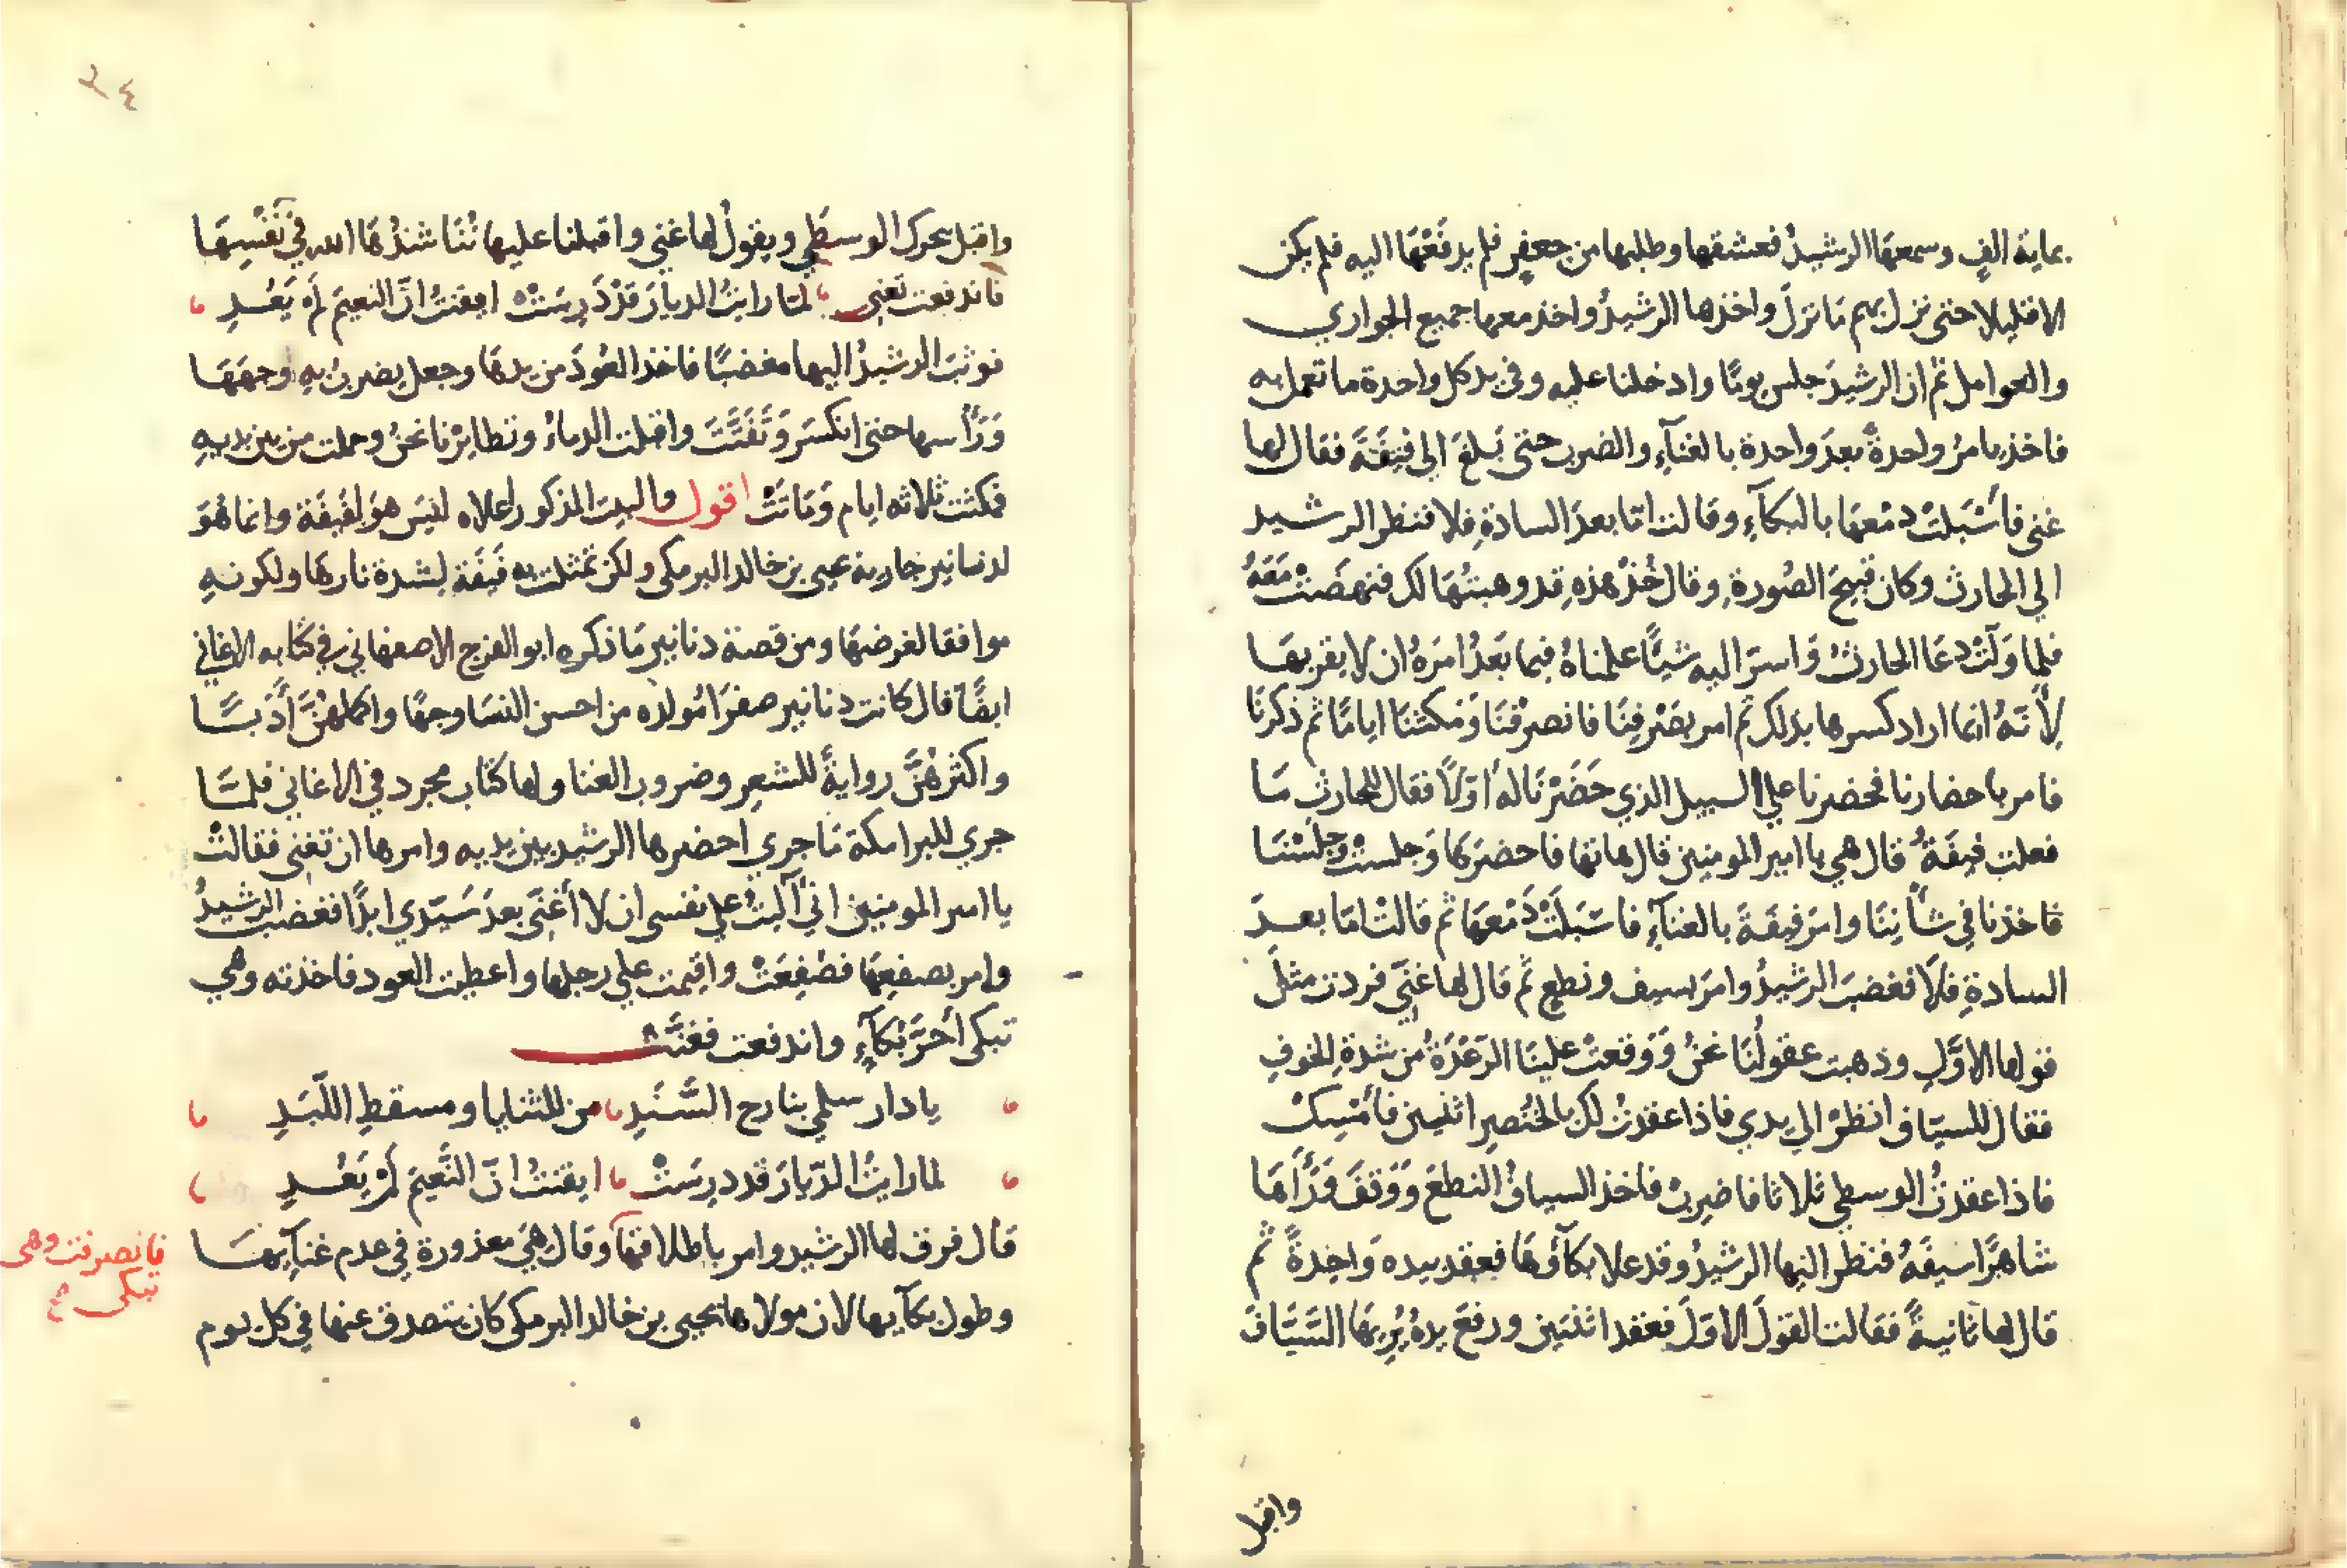 بماية الفٍ وسمعهَا الرشيدُ فعشقها وطلبها من جعفٍر فلم يدفَعْهَا اليه فلم يكن
الا قليلا حتى نزل بهم مَا نزلَ واخذها الرشيدُ واخذ معها جميع الجواري
والعوامل ثم ان الرشيدَ جلس يومًا وادخلنا عليه وفي يد كل واحدة ما تعمل به
فاخذ يامرُ واحدةً بعدَ واحدة بالغنآءِ والضرب حتى بَلغَ الي فيقَةَ فقال لها
غنى فأسْبَلتْ دمْعهَا بالبكآءِ وقالت امّا بعدَ السادةِ فلا فنظر الرشيد
الي الحارث وكان قبيحَ الصُورةِ وقال خُذْ هذهِ قد وهبتُهَا لك فنهضَتْ مَعَهُ
فلما وَلّتْ دعَا الحارثُ وَاسرَّ اليه شيئًا علمناهُ فيما بَعدُ امَرهُ ان لا يقربهَا
لِأَنهُ انما اراد كسرها بذلك ثم امر بصَرْفِنَا فانصرْفنَا وَمكثنَا ايامًا ثم ذكرنَا
فامر باحضارنا فحضرنا علي السبيل الذي حَضَرْنَا لهُ اوّلاً فقال للحارثِ مَا
فعلت فيقَةُ قال هي يا امير المومنين قال هاتها فاحضرَهَا وَجلستْ وجلسْنَا
فاخذنا في شأنِنَا وامرَ فيقَةَ بالغنآءِ فاسَبَلَتْ دَمْعهَا ثم قالتْ امّا بعدَ
السادةِ فلاَ فغضبَ الرشيدُ وامرَ بسيف ونطعٍ ثم قال لها غنّي فردت مثلَ
قولها الاوَّلِ وذهبت عقولُنَا نحنُ وَوَقعتْ علينَا الرّعْدَةُ من شدةِ الخوفِ
فقال للسيّاف انظرْ الي يدي فاذا عقدتُ لك بالخنُصِر اثنين فأَمْسِكْ
فاذا عقدتُ الوسطي ثلاثا فاضربْ فاخذ السيافُ النطعَ وَوَقفَ وَرَآءَهَا
شاهرًا سيفَهُ فنظر اليهَا الرشيدُ وقد علا بكآؤُهَا فعقد بيده وَاحِدةً ثم
قال لها ثانيةً فقالت القولَ الاوّلَ فعقد اثنتين ورفعَ يدهُ يُرِيهَا السَّيَّافَ
واقبل
٣٤
واقبل يحرك الوسطَي ويقولُ لها غني واقبلنا عليها نُنَاشدُهَا الله في نَفْسِهَا
فاندفعت تغني لمّا رايتُ الديارَ قدْ دَرِسَتْ ايقنتُ انَّ النعيمَ لَم يَعُدِ
فوثبَ الرشيدُ اليها مغضبًا فاخذ العُودَ من يدهَا وجعل يضربُ بهِ وجهَهَا
وَرَأسها حتى انكسَر وَتَفَتّتَ واقبلت الدماءُ وتطايرْنا نحنُ وحملت من بين يديهِ
فمكثت ثلاثه ايام وَمَاتَتْ اقول والبيت المذكور اعلاه ليسَ هوَ لفيقَة وانما هُوَ
لدنانير جارية يحيى بن خالد البرمكى ولكن تمثلت به فَيقَة لشدة نارهَا ولكونهِ
موافقا لغرضهَا ومن قصة دنانير مَا ذكره ابو الفرج الاصفهاني في كتابه الاغاني
ايضًا قال كانت دنانير صفرَا مُولده من احسن النسَا وجهًا واكملهُنَّ أَدَبًا
واكثرهُنَّ روايةً للشعِر وضروب الغنا ولها كتاب مجرد في الاغاني فلمّا
جري للبرامكة مَا جري احضرها الرشيد بين يديه وامرها ان تغني فقالتْ
يا امير المومنين انّي آليتُ علي نفسى ان لا أغنّى بعدَ سَيّدي ابدًا فغضب الرشيدُ
وامر بصفعهَا فصُفِعَتْ واقيمت علي رجلها واعطيت العود فاخذته وهي
تبكي أحَرَّ بُكآءٍ واندفعت فغنَّتْ
يا دار سلمي بنازح السَّنَدِ من الثنايا ومسقطِ اللَّبَدِ
لما رايتُ الدّيارَ قد درِسَتْ ايقنتُ انّ النَّعيمَ لَمْ يَعُدِ
قال فرق لها الرشيد وامر باطلاقهَا وقال هيَ معذورة في عدم غنآيهَا
فانصرفت وهى
تبكى صح
وطول بكآيها لان مولاها يحيى بن خالد البرمكى كان يتصدق عنها في كل يوم